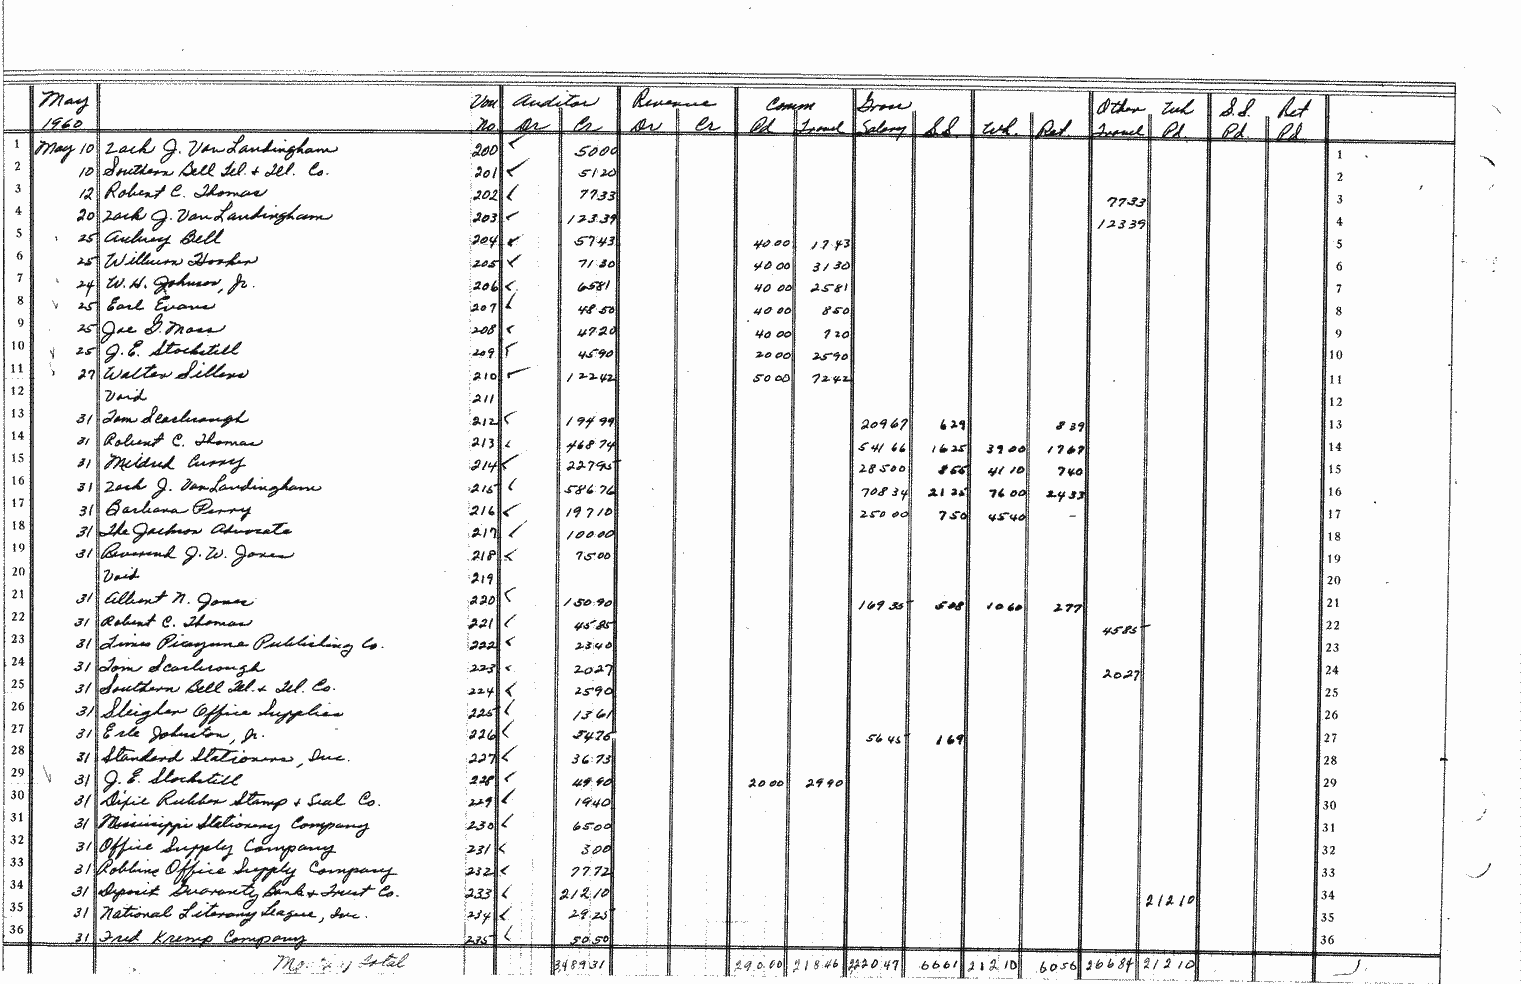 May Vou Auditor Revenue Comm Gross Other Wh S.S. Ret
1960 No. Dr Cr Dr Cr Pd Travel Salary S.S. Wh. Ret. Travel Pd. Pd. Pd.
1 May 10 Zack J. Van Landingham 200 ✓ 50 00 1
2 10 Southern Bell Tel. & Tel. Co. 201 ✓ 51 20 2
3 12 Robert C. Thomas 202 ✓ 77 33 77 33 3
4 20 Zack J. Van Landingham 203 ✓ 123 39 123 39 4
5 25 Aubrey Bell 204 ✓ 57 43 40 00 17 43 5
6 25 William Hooker 205 ✓ 71 30 40 00 31 30 6
7 24 W. H. Johnson, Jr. 206 ✓ 65 81 40 00 25 81 7
8 25 Earl Evans 207 ✓ 48 50 40 00 8 50 8
9 25 Joe G. Moss 208 ✓ 47 20 40 00 7 20 9
10 25 J. E. Stockstill 209 ✓ 45 90 20 00 25 90 10
11 27 Walter Sillers 210 ✓ 122 42 50 00 72 42 11
12 Void 211 12
13 31 Tom Scarbrough 212 ✓ 194 99 209 67 6 29 8 39 13
14 31 Robert C. Thomas 213 ✓ 468 74 541 66 16 25 39 00 17 67 14
15 31 Mildred Curry 214 ✓ 227 95 285 00 8 55 41 10 7 40 15
16 31 Zack J. Van Landingham 215 ✓ 586 76 708 34 21 25 76 00 24 33 16
17 31 Barbara Perry 216 ✓ 197 10 250 00 7 50 45 40 - 17
18 31 The Jackson Advocate 217 ✓ 100 00 18
19 31 Reverend J. W. Jones 218 ✓ 75 00 19
20 Void 219 20
21 31 Albert N. Jones 220 ✓ 150 90 169 35 5 08 10 60 2 77 21
22 31 Robert C. Thomas 221 ✓ 45 85 45 85 22
23 31 Times Picayune Publishing Co. 222 ✓ 23 40 23
24 31 Tom Scarbrough 223 ✓ 20 27 20 27 24
25 31 Southern Bell Tel. & Tel. Co. 224 ✓ 25 90 25
26 31 Sleigher Office Supplies 225 ✓ 13 61 26
27 31 Erle Johnston, Jr. 226 ✓ 54 76 56 45 1 69 27
28 31 Standard Stationers, Inc. 227 ✓ 36 73 28
29 31 J. E. Stockstill 228 ✓ 49 90 20 00 29 90 29
30 31 Dixie Rubber Stamp & Seal Co. 229 ✓ 19 40 30
31 31 Mississippi Stationery Company 230 ✓ 65 00 31
32 31 Office Supply Company 231 ✓ 3 00 32
33 31 Robbins Office Supply Company 232 ✓ 77 72 33
34 31 Deposit Guaranty Bank & Trust Co. 233 ✓ 212 10 212 10 34
35 31 National Literary League, Inc. 234 ✓ 29 25 35
36 31 Fred Kremp Company 235 ✓ 50 50 36
Total 3489 31 290 00 218 46 2220 47 66 61 212 10 60 56 266 84 212 10